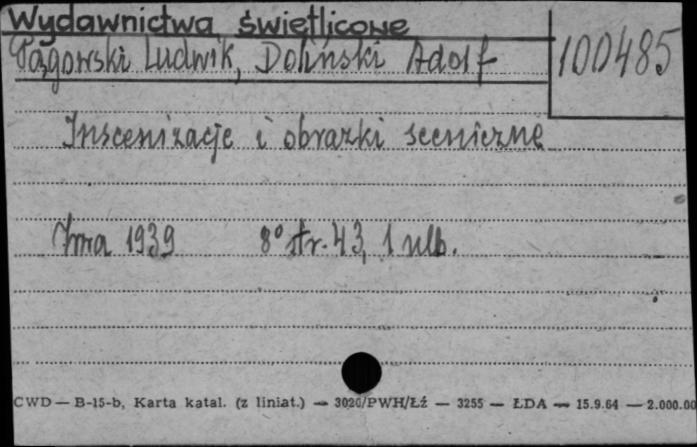 Wydawnictwa świetlicowe
Pągowski Ludwik, Doliński Adolf
100485
Inscenizacje i obrazki sceniczne
1939 8° str. 43, 1 nlb.
CWD — B-15-b, Karta katal. (z liniat.) — 3020/PWH/Łź — 3255 — ŁDA — 15.9.64 — 2.000.00